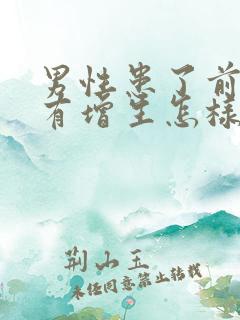 男性患了前
有增生怎样
荆山玉
未经同意禁止转载